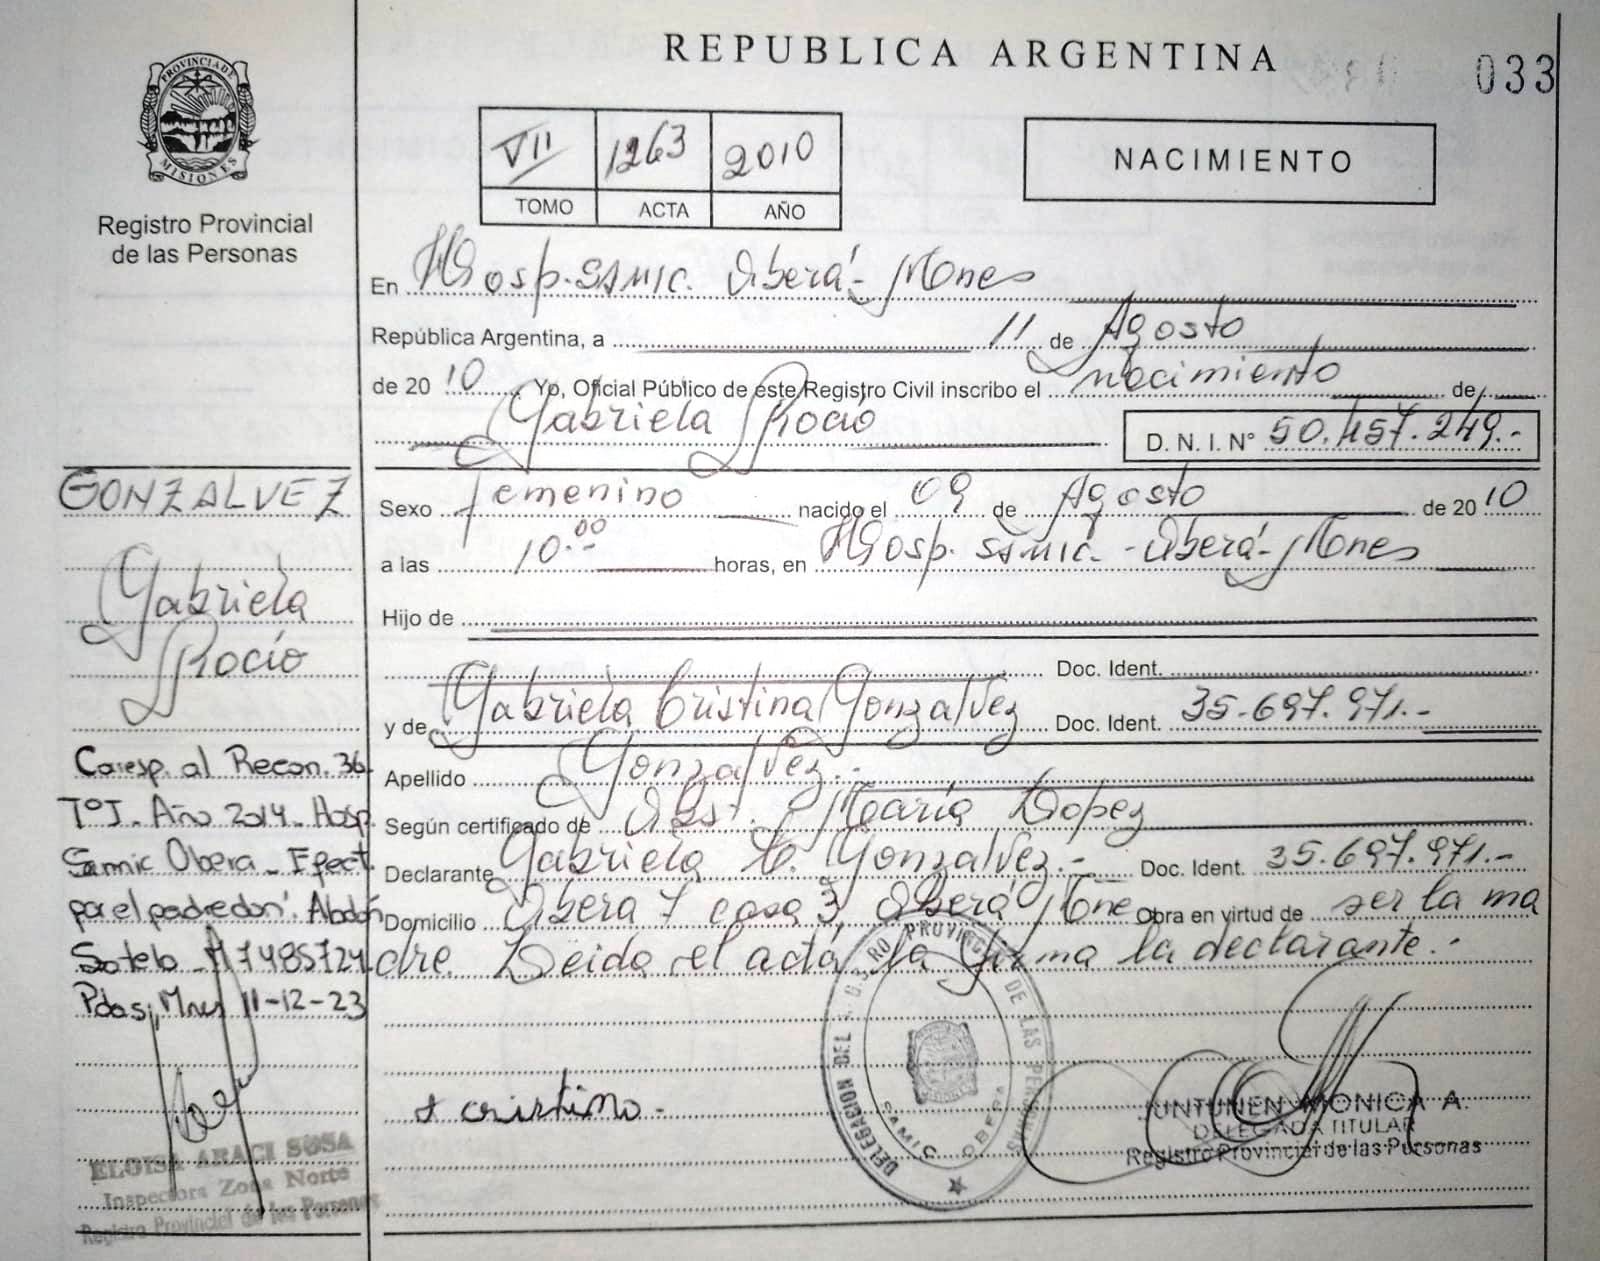 REPUBLICA ARGENTINA
033
PROVINCIA DE
MISIONES
Registro Provincial
de las Personas
VII 1263 2010
TOMO ACTA AÑO
NACIMIENTO
En Hosp. SAMIC. Oberá - Mnes
República Argentina, a 11 de Agosto
de 20 10 Yo, Oficial Público de este Registro Civil inscribo el nacimiento de
Gabriela Rocío
D. N. I. Nº 50.457.249.-
GONZALVEZ
Gabriela
Rocío
Sexo femenino nacido el 09 de Agosto de 20 10
a las 10.00 horas, en Hosp. SAMIC. - Oberá - Mnes
Hijo de
Doc. Ident.
y de Gabriela Cristina Gonzalvez Doc. Ident. 35.697.971.-
Apellido Gonzalvez.-
Según certificado de Obst. María Lopez
Declarante Gabriela C. Gonzalvez.- Doc. Ident. 35.697.971.-
Domicilio Obera 7 casa 3 Oberá Mne Obra en virtud de ser la ma
dre Leida el acta la firma la declarante.-
Coresp. al Recon. 36
TºI. Año 2014. Hosp
Samic Obera - Efect.
por el padre don. Abdon
Sotelo - M7485724
Pdas, Mnes 11-12-23
cristina -
DELEGACION DEL PROVINCIAL DE LAS PERSONAS
SAMIC OBERA
JUNTUNEN MONICA A.
DELEGADA TITULAR
Registro Provincial de las Personas
ELOISA ARACI SOSA
Inspectora Zona Norte
Registro Provincial de las Personas